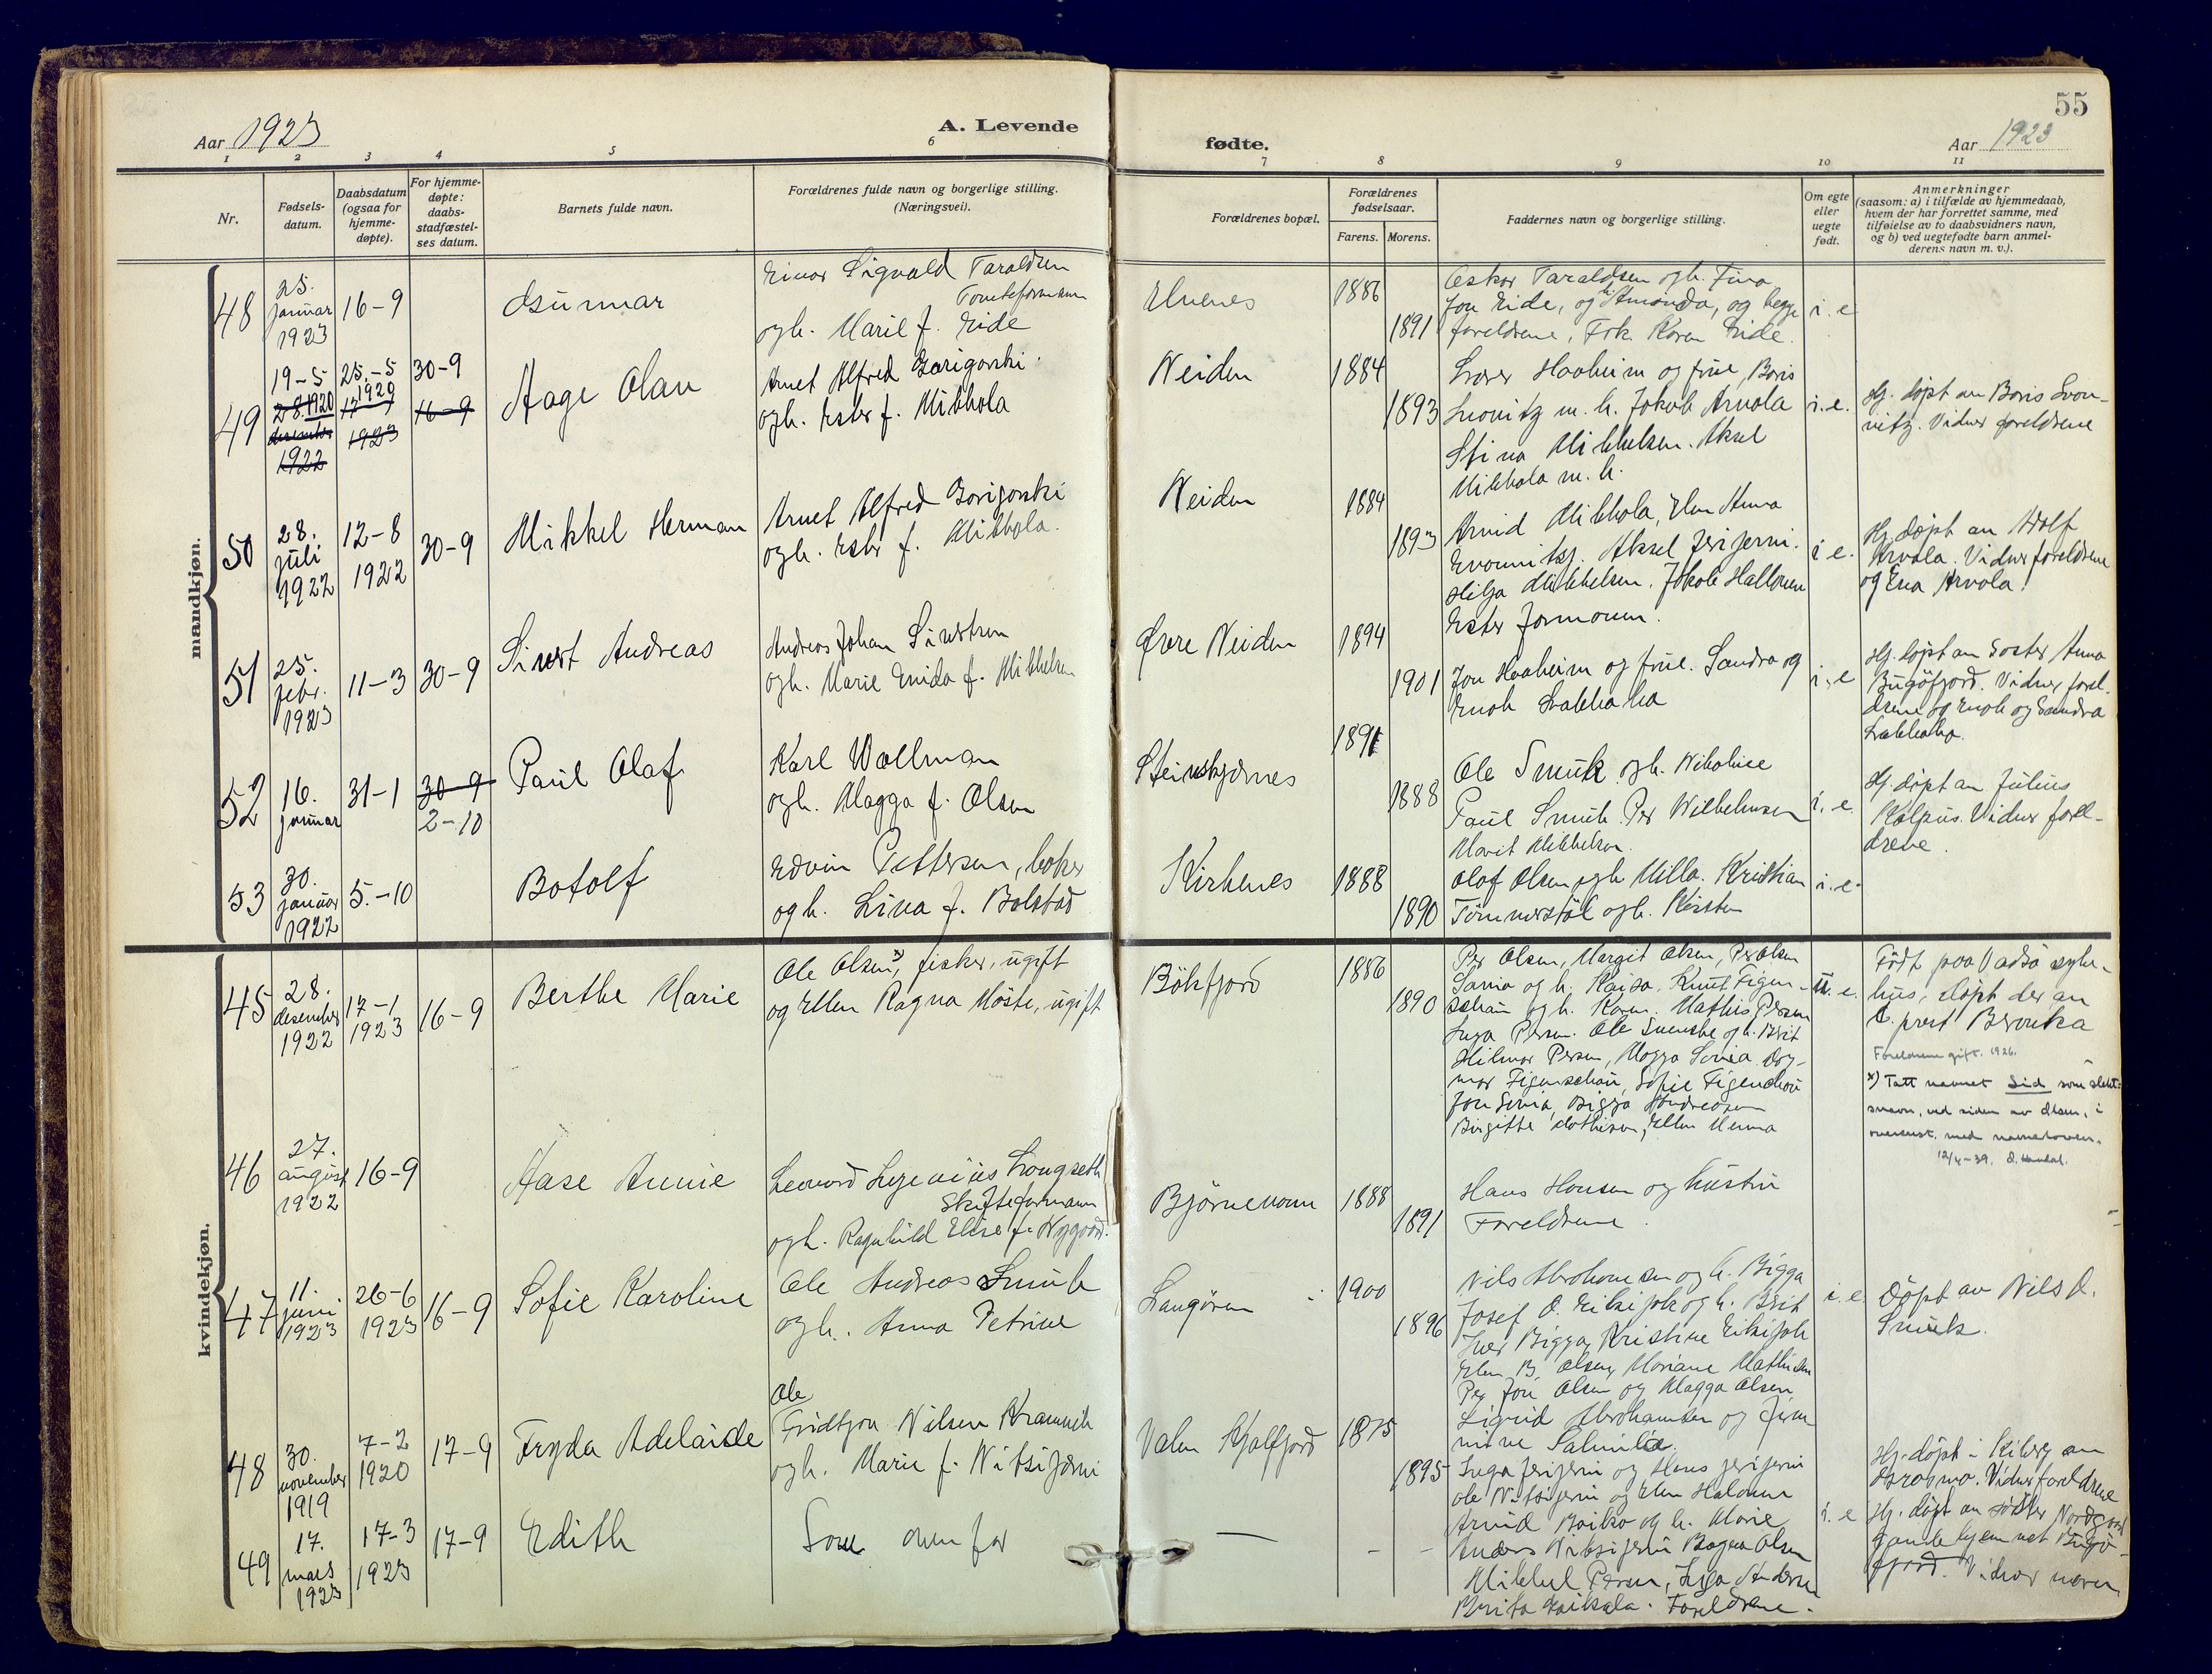 55
Aar 1923
A. Levende
fødte.
Aar 1923
1 2 3 4 5 6
7 8 9 10 11
Nr.
Fødsels-
datum.
Daabsdatum
(ogsaa for
hjemme-
døpte).
For hjemme-
døpte:
daabs-
stadfæstel-
ses datum.
Barnets fulde navn.
Forældrenes fulde navn og borgerlige stilling.
(Næringsvei).
Forældrenes bopæl.
Forældrenes
fødselsaar.
Farens. Morens.
Faddernes navn og borgerlige stilling.
Om egte
eller
uegte
født.
Anmerkninger
(saasom: a) i tilfælde av hjemmedaab,
hvem der har forrettet samme, med
tilføielse av to daabsvidners navn,
og b) ved uegtefødte barn anmel-
derens navn m. v.).
mandkjøn.
48
25.
januar
1923
16-9
Gunnar
Einar Sigvald Taraldsen
og h. Marie f. Eide
Elvenes
1886
1891
Oskar Taraldsen og h. Fina
Jon Eide, og Amanda, og begge
foreldrene, Frk. Karen Eide.
i. e
49
19-5
1920
28
desember
1922
25.-5
1920
17-7
1923
30-9
16-9
Aage Olav
Arnet Alfred
og h. Ester f. Mikkola
Neiden
1884
1893
Haaheim og frue, Boris
m. h. Jakob Arvola
Stina Mikkelsen. Aksel
Mikkola m. h.
i. e.
Hj. døpt av Boris
Vidner foreldrene
50
28.
juli
1922
12-8
1922
30-9
Mikkel Herman
Arnet Alfred
og h. Ester f. Mikkola.
Neiden
1884
1893
Arvid Mikkola, Elen Anna
Aksel
Hilja Mikkelsen. Jakob
Ester
i. e.
Hj. døpt av Adolf
Arvola. Vidner foreldrene
og Eva Arvola.
51
25.
febr.
1923
11-3
30-9
Sivert Andreas
Andreas Johan Sivertsen
og h. Marie Enida f. Mikkelsen
Øvre Neiden
1894
1901
Jon Haaheim og frue. Sandra og
Enok
i. e
Hj. døpt av søster Anna
Bugøfjord. Vidner forel-
drene og Enok og Sandra
52
16.
januar
31-1
30-9
2-10
Paul Olaf
Karl Wallman
og h. Magga f. Olsen
Steinskjærnes
1891
1888
Ole Smuk og h. Nikoline
Paul Smuk. Per Wilhelmsen
Marit Mikkelsen.
i. e.
Hj. døpt av Julius
Kalpus. Vidner forel-
drene.
53
30.
januar
1922
5.-10
Botolf
Edvin Pettersen, baker
og h. Lina f. Bolstad
Kirkenes
1888
1890
Olaf Olsen og h. Milla. Kristian
og h. Kirsten
i. e.
kvindekjøn.
45
28.
desember
1922
17-1
1923
16-9
Berthe Marie
Ole Olsen x), fisker, ugift
og Ellen Ragna Moste, ugift
Bökfjord
1886
1890
Per Olsen, Margit Olsen, Per Olsen
og h. Kaisa. Knut Figen-
schau og h. Karen. Mathis Persen
Inga Persen. Ole Svenske og h. Brit
Hilmar Persen, Magga Dag-
mar Figenschau, Sofie Figenschau
Jon Bigga Andreasen
Birgitte Mathisen, Ellen
u. e.
Født paa Vadsø syke-
hus, døpt der av
prest Beronka
Foreldrene gift. 1926.
x) Tatt navnet Lid som slekts-
navn, ved siden av Olsen, i
overenst. med navneloven.
12/4-39.
46
27.
august
1922
16-9
Aase Annie
Leonard Langseth
Skifteformann
og h. Ragnhild Elise f. Nygaard.
Bjørnevann
1888
1891
Hans Hansen og hustru
Foreldrene.
47
11.
juni
1923
26-6
1923
16-9
Sofie Karoline
Ole Andreas Smuk
og h. Anna Petrine
Langøren
1900
1896
Nils Abrahamsen og h. Bigga
Josef O. og h. Brit
Iver Bigga, Kristine
Elen B. Olsen, Mariane Mathisen
Per Jon Olsen og Magga Olsen
i. e
Døpt av Nils O.
Smuk.
48
30.
november
1919
7-2
1920
17-9
Fryda Adelaide
Ole
Fridtjon Nilsen
og h. Marie f.
Valen Kjøfjord
1875
1895
Sigrid Abrahamsen og
Inga og Hans
Ole og Elen
Hj. døpt i Kiberg av
Vidner foreldrene
49
17.
mars
1923
17-3
1923
17-9
Edith
Som oven for
—
- -
Arvid og h. Marie
Anders Ragna Olsen
Mikkel Persen, Inga Andersen
Brita Foreldrene.
i. e
Hj. døpt av søster
hjemmet Bugø-
fjord. Vidner